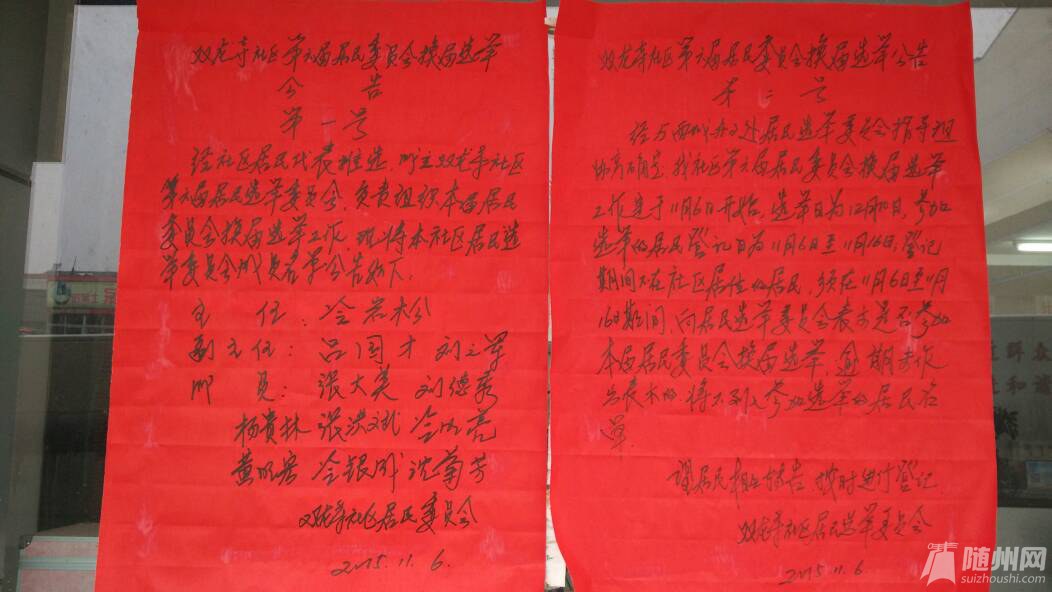 双龙寺社区第六届居民委员会换届选举
公告
第一号
经社区居民代表推选，成立双龙寺社区
第六届居民选举委员会，负责组织本届居民
委员会换届选举工作，现将本社区居民选
举委员会成员名单公告如下。
主任：冷若松
副主任：吕国才 刘立军
成员：张大英 刘德秀
杨贵林 张洪斌 冷
黄 冷银成 沈菊芳
双龙寺社区居民委员会
2015.11.6.
双龙寺社区第六届居民委员会换届选举公告
第二号
经与西城办事处居民选举委员会指导组
协商确定，我社区第六届居民委员会换届选举
工作定于11月6日开始，选举日为12月10日，参加
选举的居民登记日为11月6日至11月16日，登记
期间不在社区居住的居民，须在11月6日至11月
16日期间，向居民选举委员会表示是否参加
本届居民委员会换届选举，逾期未作
出表示的，将不列入参加选举的居民名
单。
望居民相互转告，按时进行登记
双龙寺社区居民选举委员会
2015.11.6
群众
和谐
随州网
suizhoushi.com